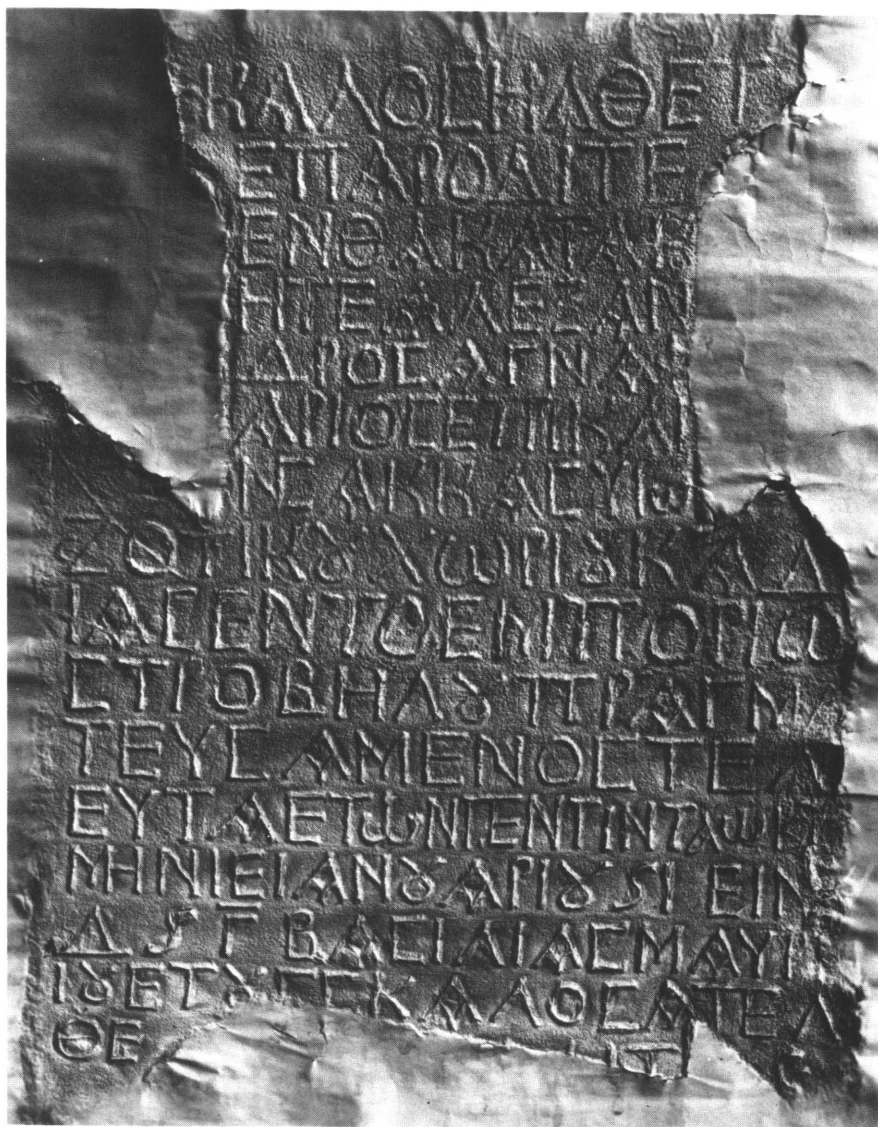 ΚΑΛΟϹΗΛΘΕΤ
ΕΠΑΡΟΔΙΤΕ
ΕΝΘΑΚΑΤΑΚ
ΗΤΕΑΛΕΞΑΝ
ΔΡΟϹΑΓΝΑϹ
ΑΡΙΟϹΕΤΠΙΚΑΙ
ΝϹΑΚΚΑϹΥΙω
ΖΟΤΙΚȣΛωΡΙȣΚΑΔ
ΙΑϹΕΝΤΟΕΜΠΟΡΙω
ϹΤΡΟΒΗΛȣΠΡΑΓΜΑ
ΤΕΥϹΑΜΕΝΟϹΤΕΛ
ΕΥΤΑΕΤωΝΠΕΝΤΙΝΤΑωΚΤ
ΜΗΝΙΕΙΑΝȣΑΡΙȣϚΙΕΙΝ
ΔϚΓΒΑϹΙΛΙΑϹΜΑΥΡ
ΙȣΕΤȣϹΚΑΛΟϹΑΠΕΛ
ΘΕ